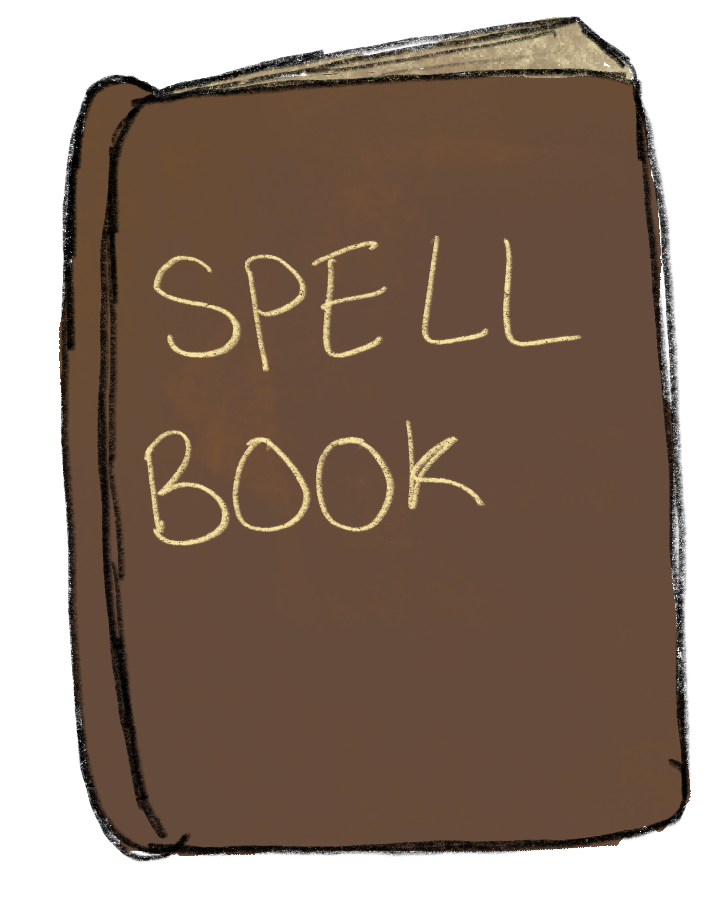 SPELL
BOOK